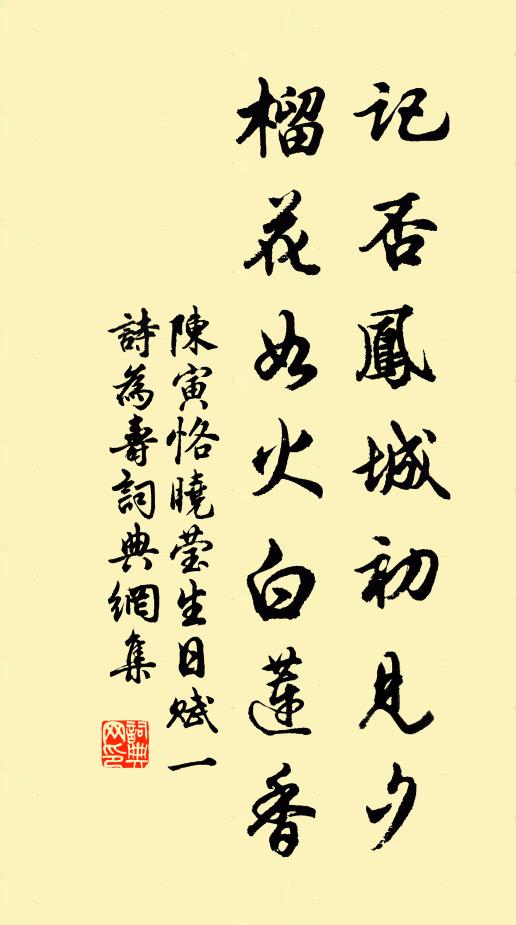 記否鳳城初見夕
榴花如火白蓮香
陳寅恪曉瑩生日賦一
詩為壽詞典網集
詞典
网印